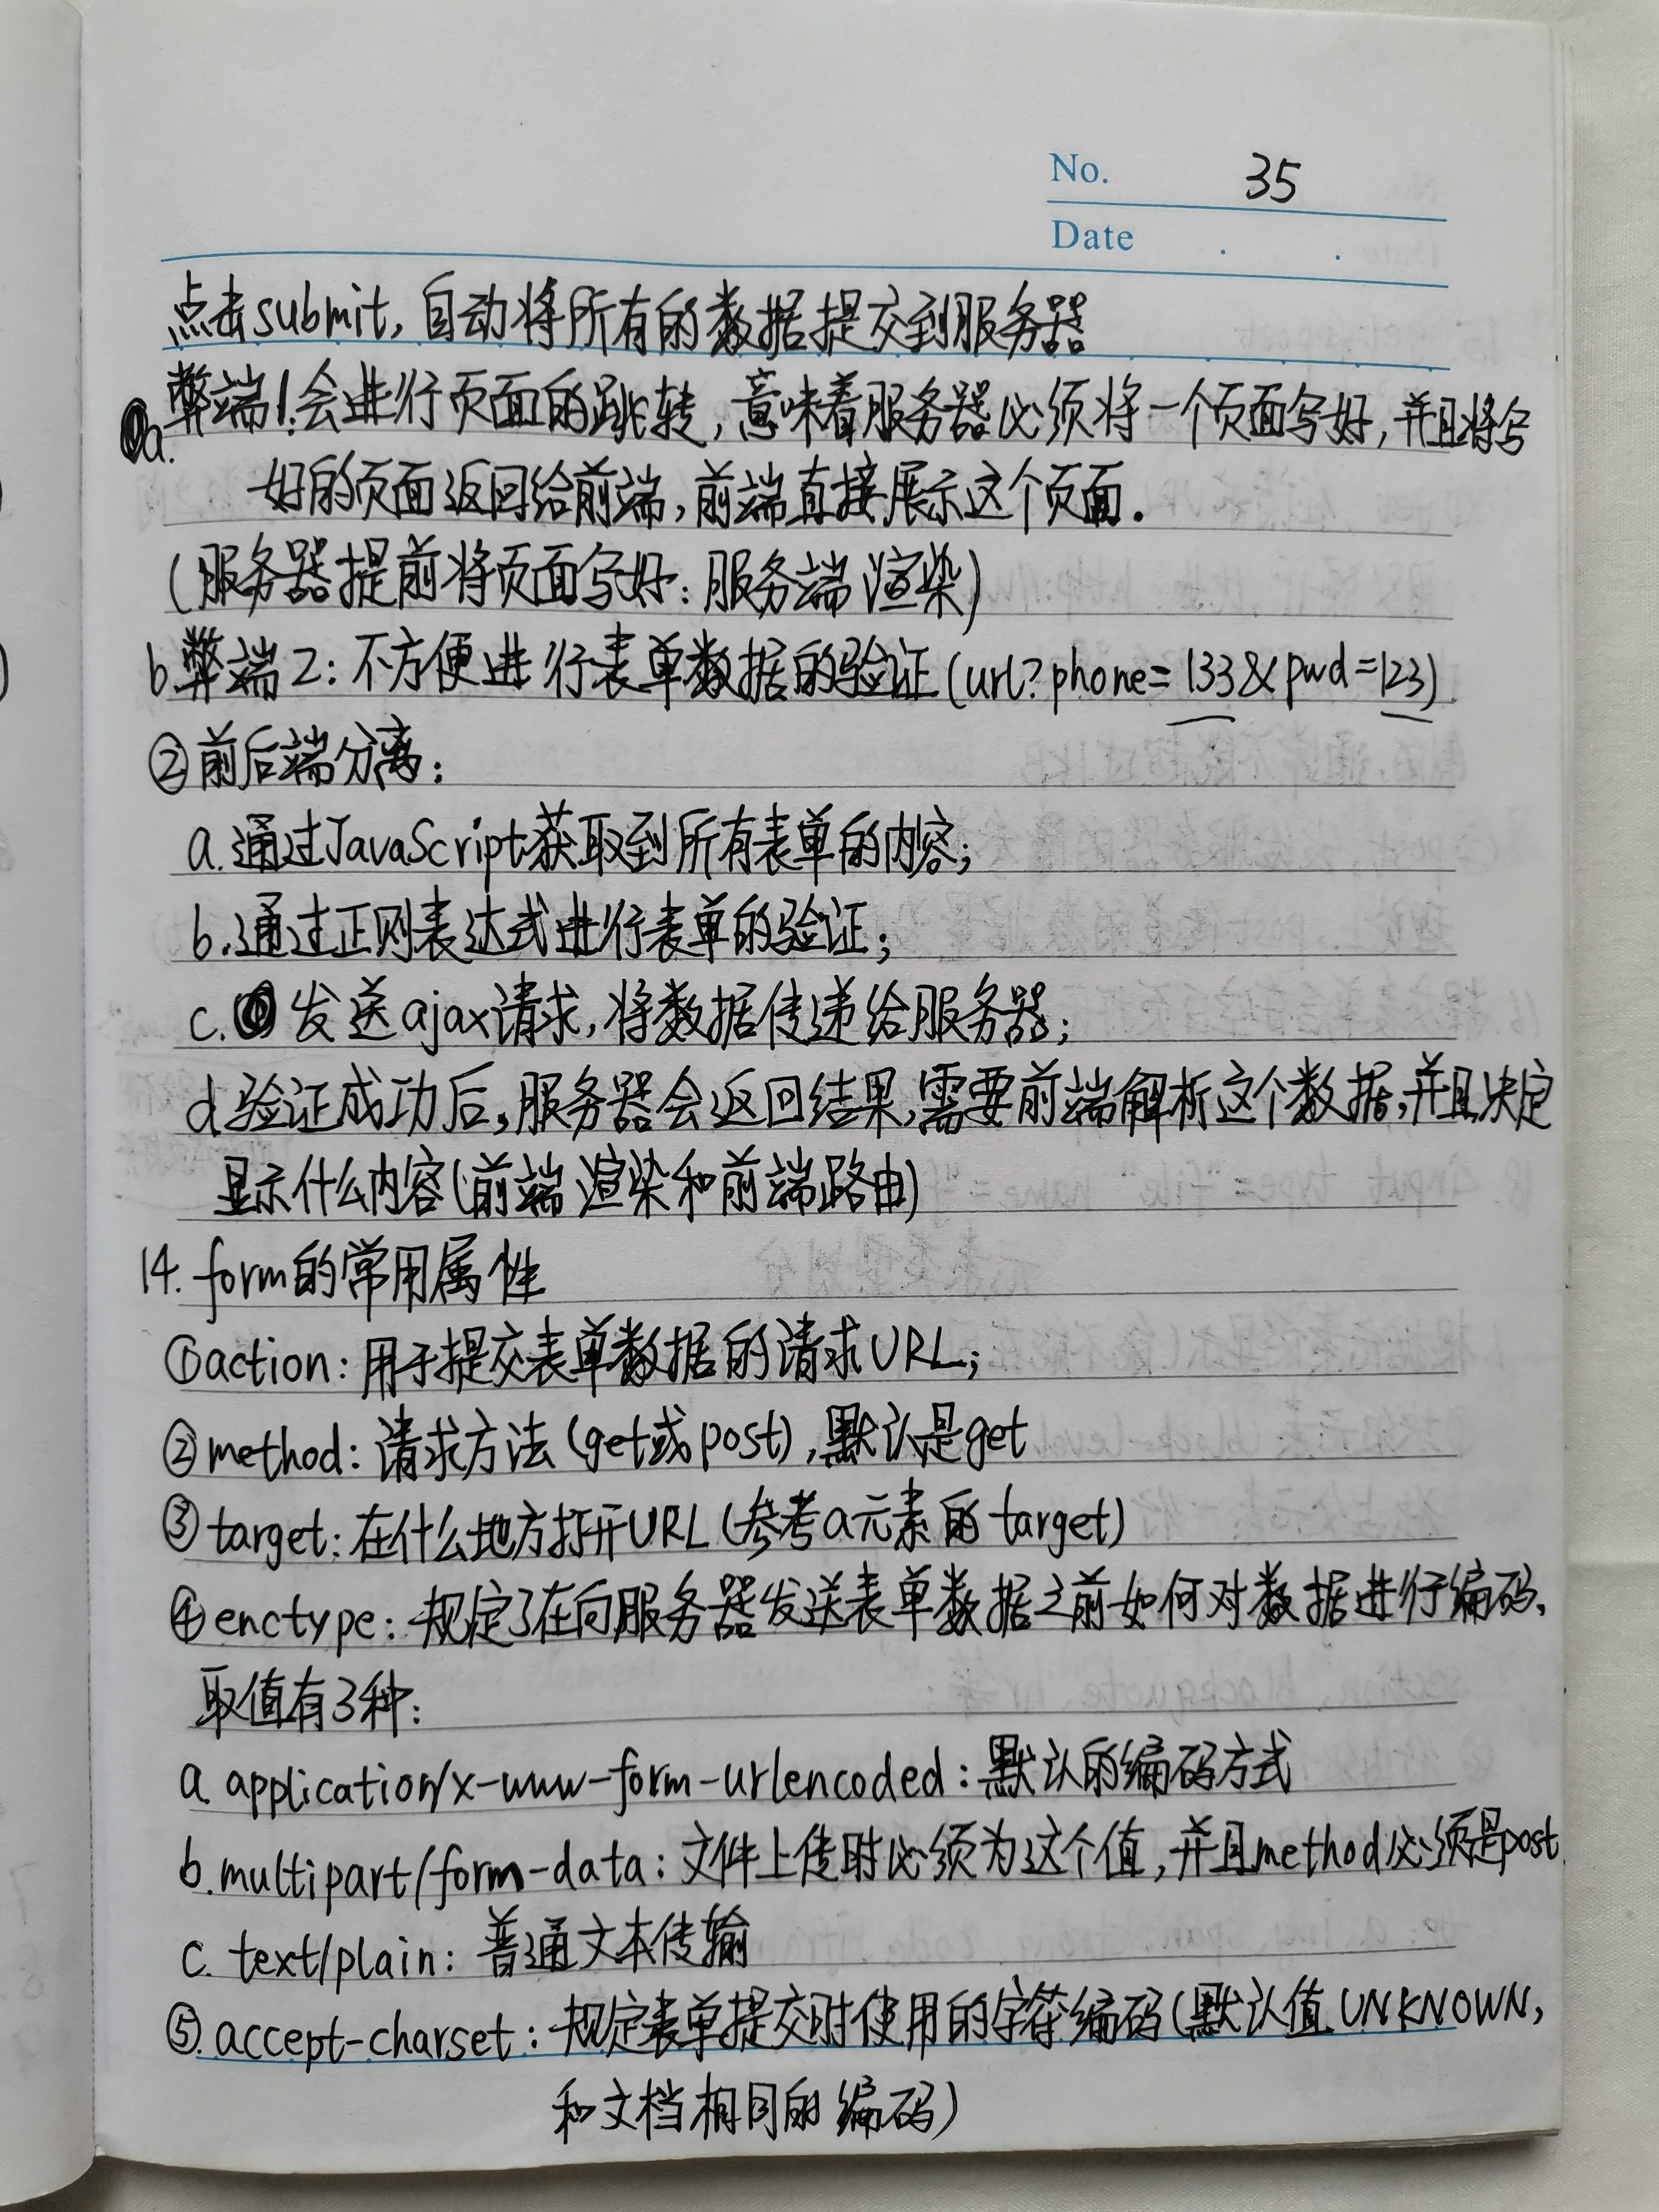 No. 35
Date . .
点击submit, 自动将所有的数据提交到服务器
a. 弊端1:会进行页面的跳转,意味着服务器必须将一个页面写好,并且将写
好的页面返回给前端,前端直接展示这个页面.
(服务器提前将页面写好:服务端渲染)
b.弊端2:不方便进行表单数据的验证(url?phone=133&pwd=123)
②前后端分离:
a.通过JavaScript获取到所有表单的内容;
b.通过正则表达式进行表单的验证;
c.发送ajax请求,将数据传递给服务器;
d.验证成功后,服务器会返回结果,需要前端解析这个数据,并且决定
显示什么内容(前端渲染和前端路由)
14. form的常用属性
①action:用于提交表单数据的请求URL;
②method:请求方法(get或post),默认是get
③target:在什么地方打开URL(参考a元素的target)
④enctype:规定了在向服务器发送表单数据之前如何对数据进行编码,
取值有3种:
a application/x-www-form-urlencoded:默认的编码方式
b.multipart/form-data:文件上传时必须为这个值,并且method必须是post
c. text/plain:普通文本传输
⑤.accept-charset:规定表单提交时使用的字符编码(默认值UNKNOWN,
和文档相同的编码)